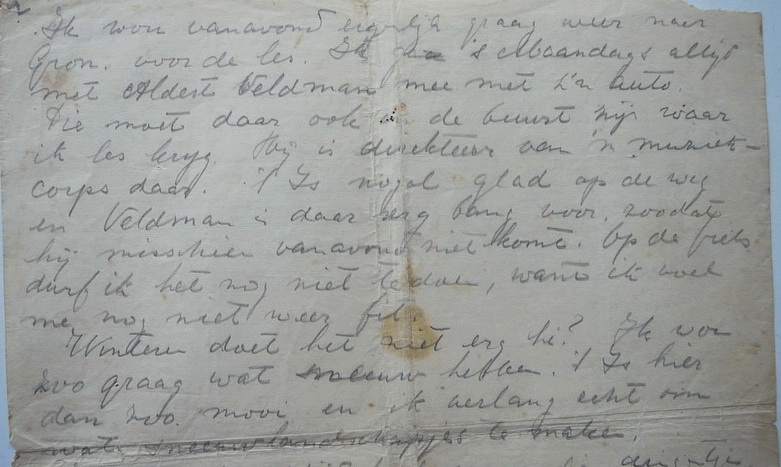 Ik wou vanavond eigenlijk graag weer naar
Gron. voor de les. Ik ga 's Maandags altijd
met Aldert Veldman mee met z'n auto.
Die moet daar ook in de buurt zijn waar
ik les kryg. Hij is direkteur van 'n muziek-
corps daar. 't Is nogal glad op de weg
en Veldman is daar erg bang voor, zoodat
hij misschien vanavond niet komt. Op de fiets
durf ik het nog niet te doen, want ik voel
me nog niet weer fit.
Winteren doet het niet erg hè? Ik wou
zoo graag wat sneeuw hebben. 't Is hier
dan zoo mooi en ik verlang echt om
wat sneeuwlandschapjes te maken.